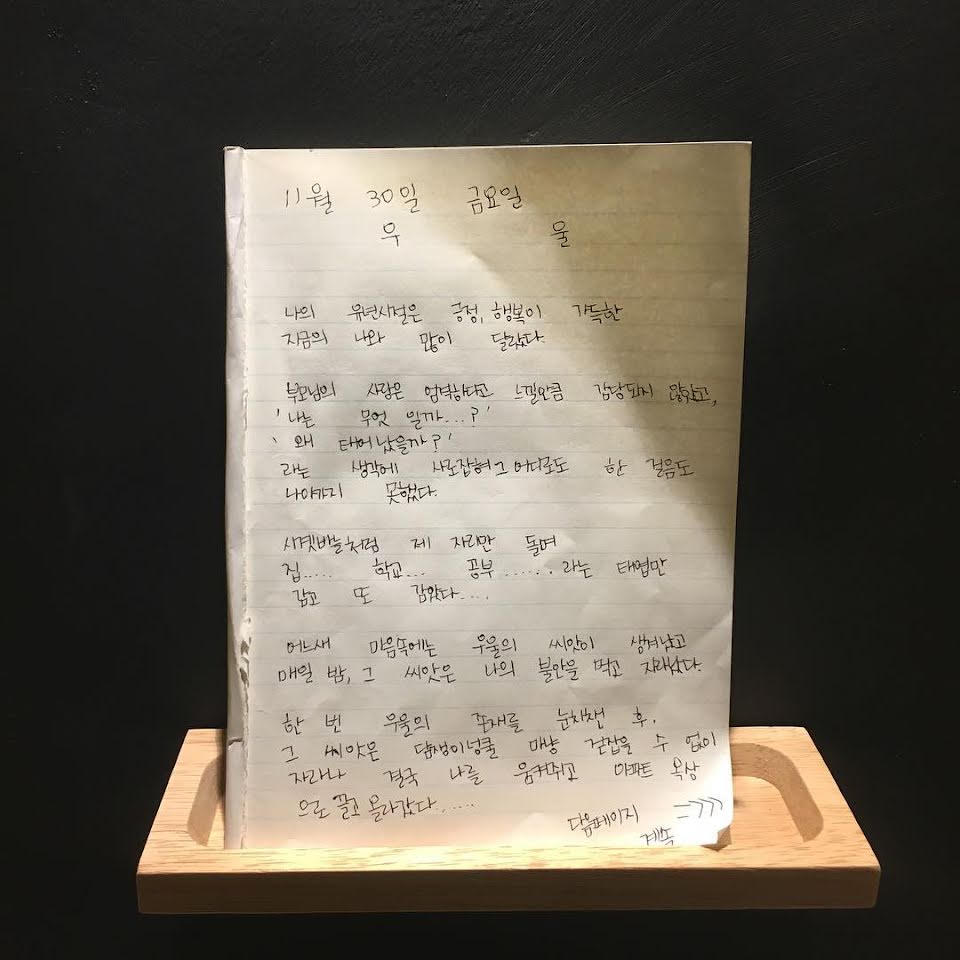 11월 30일 금요일
우 울
나의 유년시절은 긍정, 행복이 가득한
지금의 나와 많이 달랐다.
부모님의 사랑은 엄격하다고 느낄만큼 감당되지 않았고,
'나는 무엇 일까...?'
'왜 태어났을까?'
라는 생각에 사로잡혀 그 어디로도 한 걸음도
나아가지 못했다.
시곗바늘처럼 제 자리만 돌며
집..... 학교... 공부...... 라는 태엽만
감고 또 감았다....
어느새 마음속에는 우울의 씨앗이 생겨났고
매일 밤, 그 씨앗은 나의 불안을 먹고 자라났다.
한 번 우울의 존재를 눈치챈 후,
그 씨앗은 담쟁이넝쿨 마냥 걷잡을 수 없이
자라나 결국 나를 움켜쥐고 아파트 옥상
으로 끌고 올라갔다......
다음페이지
계속